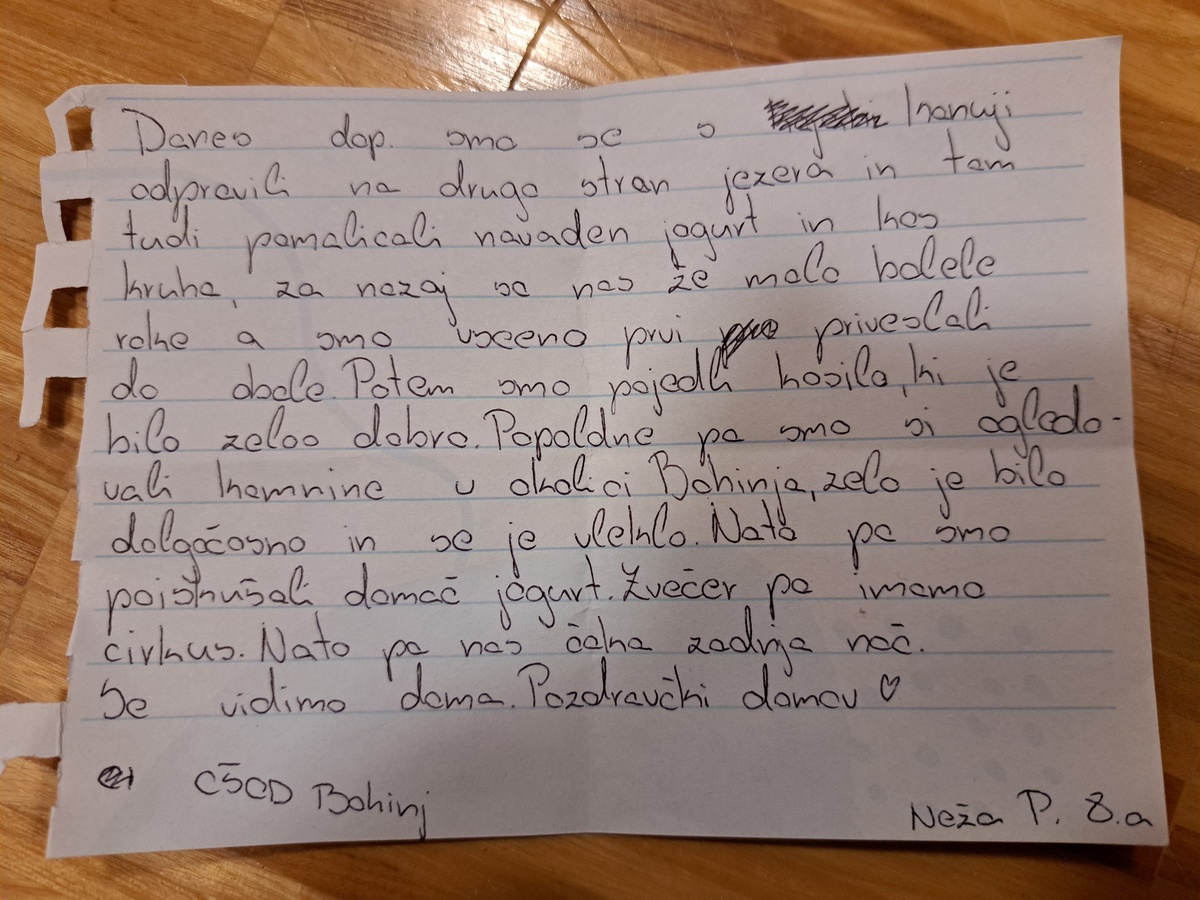 Danes dop. smo se s kanuji
odpravili na drugo stran jezera in tam
tudi pomalicali navaden jogurt in kos
kruha, za nazaj so nas že malo bolele
roke a smo vseeno prvi priveslali
do obale. Potem smo pojedli kosilo, ki je
bilo zeloo dobro. Popoldne pa smo si ogledo-
vali kamnine v okolici Bohinja, zelo je bilo
dolgočasno in se je vleklo. Nato pa smo
poiskušali domač jogurt. Zvečer pa imamo
cirkus. Nato pa nas čaka zadnja noč.
Se vidimo doma. Pozdravčki domov ♡
CŠOD Bohinj
Neža P. 8.a